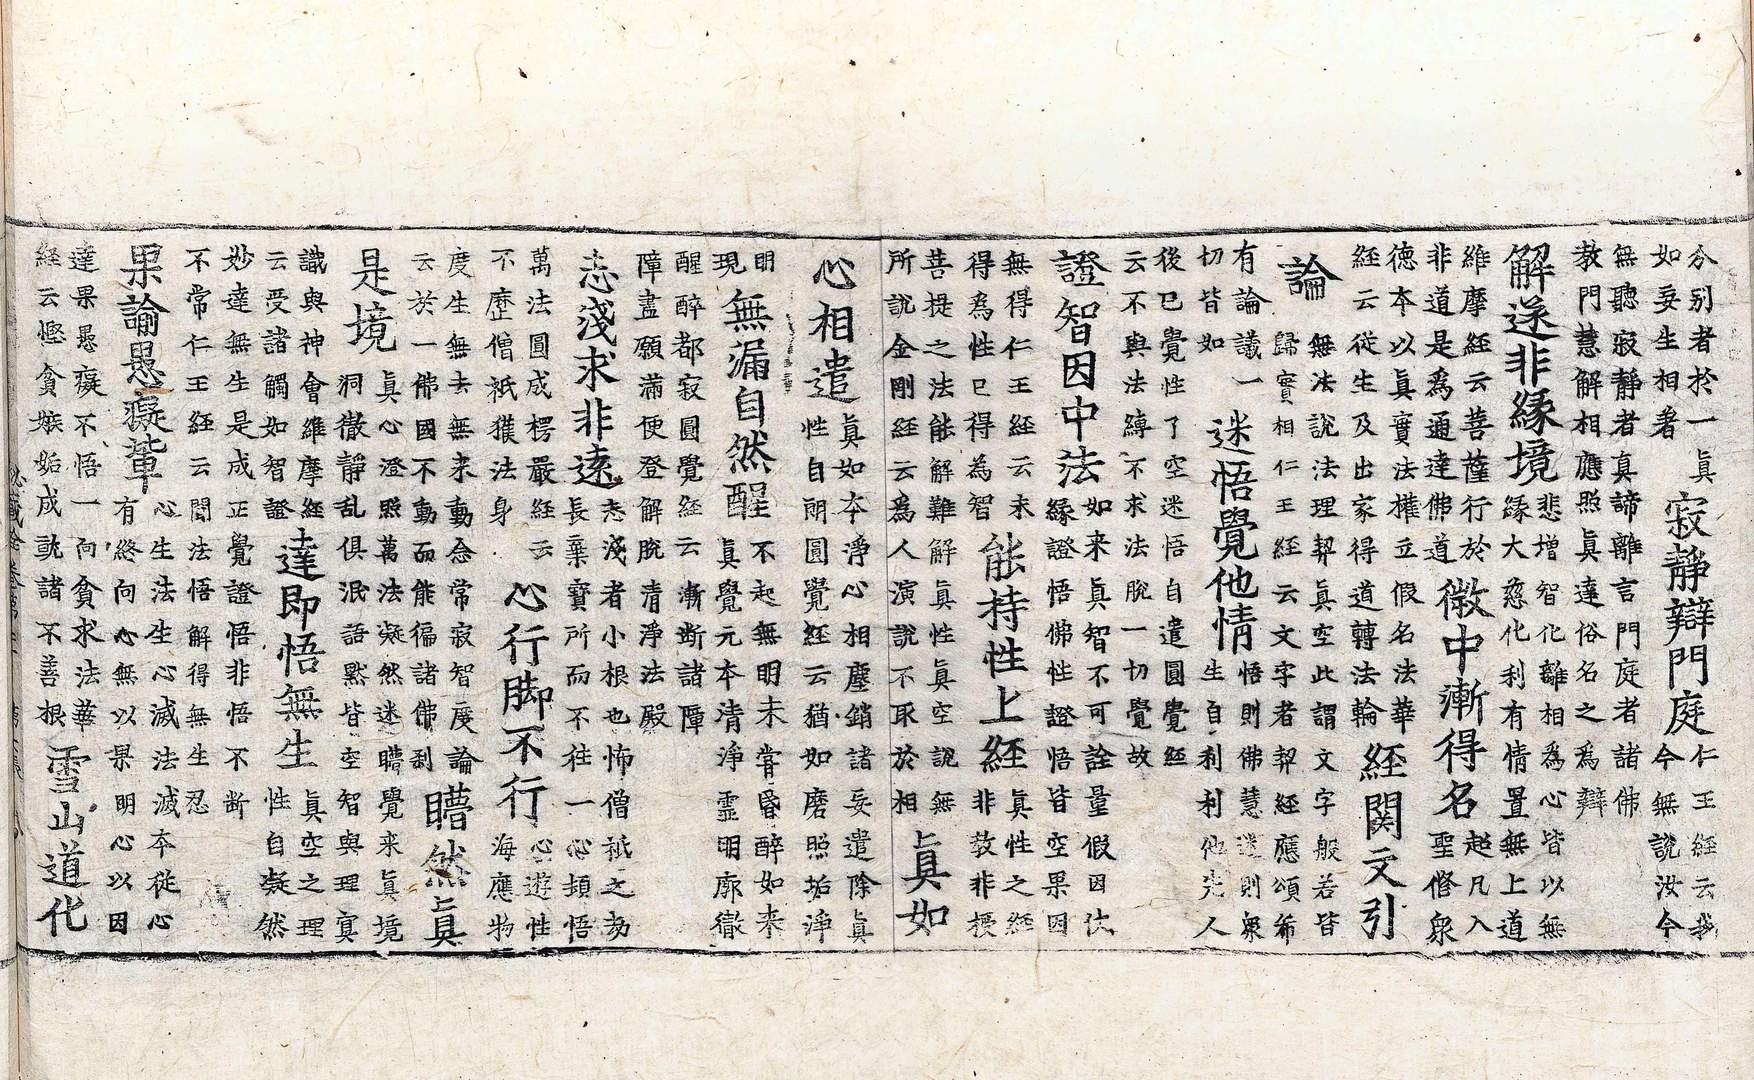 分别者於一眞
如妄生相者
寂靜辯門庭
仁王經云我
今無說汝今
無聽寂靜者真諦離言門庭者諸佛
教門慧解相應照真達俗名之為辯
解遂非縁境
悲增智化離相為心皆以無
緣大慈化利有情置無上道
維摩經云菩薩行於
非道是為通達佛道
微中漸得名
超凡入
聖修衆
德本以真實法權立假名法華
經云従生及出家得道轉法輪
経関文引
論
無法說法理契真空此謂文字般若皆
歸實相仁王經云文字者契經應頌希
有論議一
切皆如
迷悟覺他情
悟則佛慧迷則衆
生自利利他先人
後已覺性了空迷悟自遣圓覺經
云不與法縛不求法脫一切覺故
證智因中法
如来真智不可詮量假因伏
緣證悟佛性證悟皆空果因
無得仁王經云未
得為性已得為智
能持性上経
真性之經
非教非授
菩提之法能解難解真性真空說無
所說金剛經云為人演說不取於相
眞如
心相遣
真如本淨心相塵銷諸妄遣除真
性自朗圓覺經云猶如磨照垢淨
明
現
無漏自然醒
不起無明未甞昏醉如来
真覺元本清淨靈明廓徹
醒醉都寂圓覺經云漸断諸障
障盡願滿便登解脫清淨法殿
志淺求非逺
志淺者小根也怖僧祇之劫
長棄寶所而不往一心頓悟
萬法圓成楞嚴經云
不歷僧祇獲法身
心行脚不行
心遊性
海應物
度生無去無来動念常寂智度論
云於一佛國不動而能徧諸佛刹
瞻然眞
是境
真心澄照萬法凝然迷曠覺来真境
洞徹靜乱俱泯語黙皆空智與理冥
識與神會維摩經
云受諸觸如智證
達即悟無生
真空之理
性自凝然
妙達無生是成正覺證悟非悟不断
不常仁王經云聞法悟解得無生忍
果諭愚癡軰
心生法生心滅法滅本從心
有終向心無以果明心以因
達果愚癡不悟一向貪求法華
經云慳貪嫉妬成就諸不善根
雪山道化